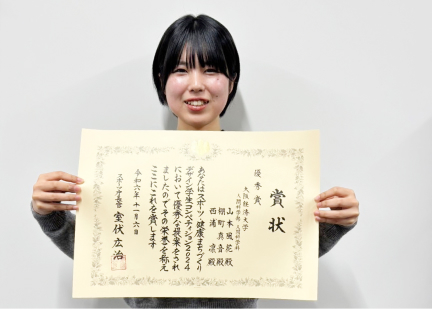 賞状
優秀賞
大阪経済大学
人間科学部 人間科学科
山本風花殿
棚町真音殿
西浦凛殿
あなたはスポーツ・健康まちづくり
デザイン学生コンペティション2024
において優秀な提案をされ
ましたのでその栄誉を称え
ここにこれを賞します
令和六年十一月六日
スポーツ庁長官 室伏広治